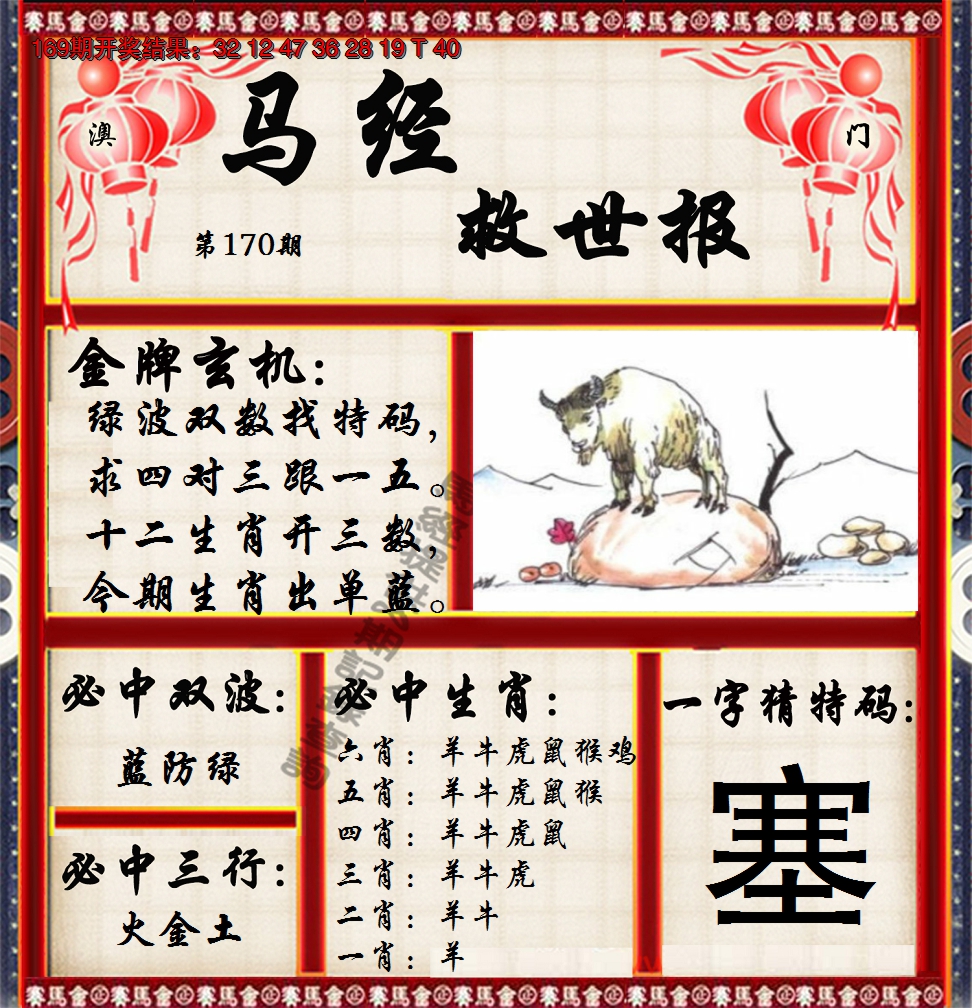 169期开奖结果：32 12 47 36 28 19 T 40
澳 门
马经
救世报
第170期
金牌玄机：
绿波双数找特码，
求四对三跟一五。
十二生肖开三数，
今期生肖出单蓝。
必中双波：
蓝防绿
必中三行：
火金土
必中生肖：
六肖：羊牛虎鼠猴鸡
五肖：羊牛虎鼠猴
四肖：羊牛虎鼠
三肖：羊牛虎
二肖：羊牛
一肖：羊
一字猜特码：
塞